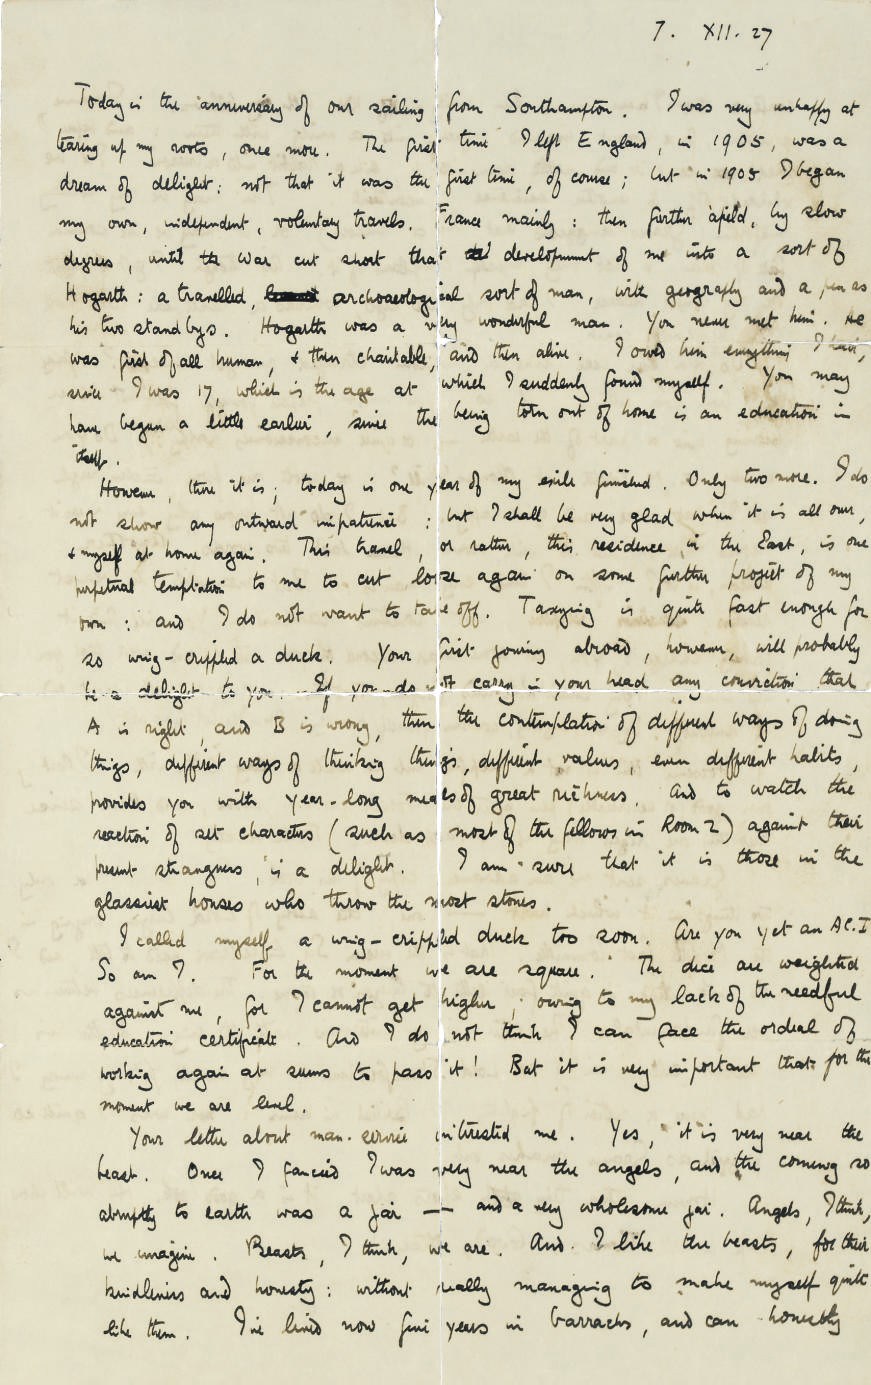 7. XII. 27
Today is the anniversary of our sailing from Southampton. I was very unhappy at
tearing up my roots, once more. The first time I left England, in 1905, was a
dream of delight: not that it was the first time, of course; but in 1905 I began
my own, independent, voluntary travels. France mainly: then further afield, by slow
degrees, until the War cut short that development of me into a sort of
Hogarth: a travelled, archaeological sort of man, with geography and a pen as
his two standbys. Hogarth was a very wonderful man. You never met him. He
was first of all human, & then charitable, and then alive. I owed him everything I have,
since I was 17, which is the age at which I suddenly found myself. You may
have begun a little earlier, since the being torn out of home is an education in
itself.
However, there it is; today is one year of my exile finished. Only two more. I do
not show any outward impatience: but I shall be very glad when it is all over,
& myself at home again. This travel, or rather, this residence in the East, is one
perpetual temptation to me to cut loose again on some further project of my
own: and I do not want to take off. Taxying is quite fast enough for
so wing-crippled a duck. Your first journey abroad, however, will probably
be a delight to you. If you do not carry in your head any conviction that
A is right, and B is wrong, then the contemplation of different ways of doing
things, different ways of thinking things, different values, even different habits,
provides you with year-long meals of great richness. And to watch the
reaction of set characters (such as most of the fellows in Room 2) against their
present strangeness, is a delight. I am sure that it is those in the
glassiest houses who throw the most stones.
I called myself a wing-crippled duck too soon. Are you yet an AC.I
So am I. For the moment we are square. The dice are weighted
against me, for I cannot get higher, owing to my lack of the needful
education certificate. And I do not think I can face the ordeal of
working again at sums to pass it! But it is very important that for the
moment we are level.
Your letter about man-service interested me. Yes, it is very near the
beast. Once I fancied I was very near the angels, and the coming so
abruptly to earth was a jar — and a very wholesome jar. Angels, I think,
we imagine. Beasts, I think, we are. And I like the beasts, for their
kindliness and honesty: without really managing to make myself quite
like them. I've lived now five years in barracks, and can honestly